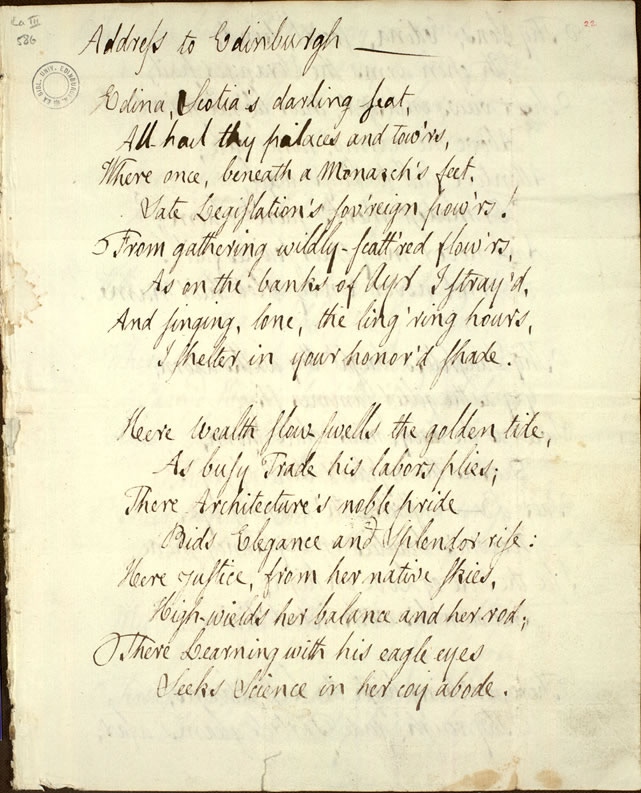 La III
586
22
Addreſs to Edinburgh
Edina, Scotia's darling ſeat,
All hail thy palaces and tow'rs,
Where once, beneath a Monarch's feet,
Sate Legiſlation's ſov'reign pow'rs!
From gathering wildly-ſcatt'red flow'rs,
As on the banks of Ayr I ſtray'd,
And ſinging, lone, the ling'ring hours,
I ſhelter in your honor'd ſhade.
Here Wealth ſtill ſwells the golden tide,
As buſy Trade his labors plies;
There Architecture's noble pride
Bids Elegance and Splendor riſe:
Here Juſtice, from her native ſkies,
High-wields her balance and her rod;
There Learning with his eagle eyes
Seeks Science in her coy abode.